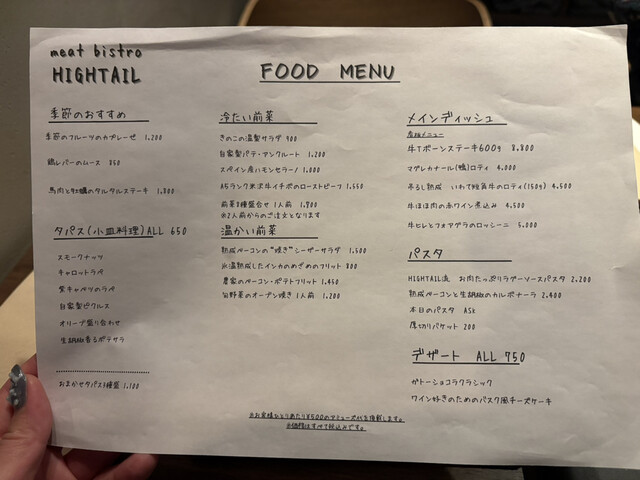 meat bistro
HIGHTAIL
FOOD MENU
季節のおすすめ
季節のフルーツのカプレーゼ 1,200
鶏レバーのムース 850
馬肉と牡蠣のタルタルステーキ 1,800
タパス(小皿料理)ALL 650
スモークナッツ
キャロットラペ
紫キャベツのラペ
自家製ピクルス
オリーブ盛り合わせ
生胡椒香るポテサラ
おまかせタパス3種盛 1,100
冷たい前菜
きのこの温製サラダ 900
自家製パテ・アンクルート 1,200
スペイン産ハモンセラーノ 1,000
A5ランク米沢牛イチボのローストビーフ 1,550
前菜3種盛合せ 1人前 1,900
※2人前からのご注文となります
温かい前菜
熟成ベーコンの"焼き"シーザーサラダ 1,500
氷温熟成したインカのめざめのフリット 800
農家のベーコン・ポテトフリット 1,450
旬野菜のオーブン焼き 1人前 1,200
メインディッシュ
看板メニュー
牛Tボーンステーキ600g 8,800
マグレカナール(鴨)ロティ 4,000
吊るし熟成 いわて短角牛のロティ(150g) 4,500
牛ほほ肉の赤ワイン煮込み 4,500
牛ヒレとフォアグラのロッシーニ 5,000
パスタ
HIGHTAIL流 お肉たっぷりラグーソースパスタ 2,200
熟成ベーコンと生胡椒のカルボナーラ 2,400
本日のパスタ ASK
厚切りバケット 200
デザート ALL 750
ガトーショコラクラシック
ワイン好きのためのバスク風チーズケーキ
※お客様ひとりあたり¥500のアミューズ代を頂戴します。
※価格はすべて税込みです。